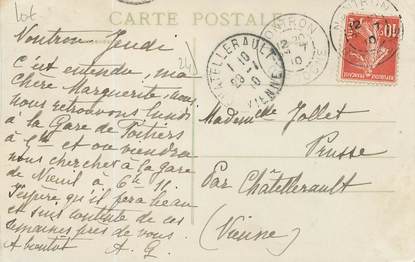 Lot
CARTE POSTALE
24
Nontron Jeudi
C'est entendu, ma
chère Marguerite, nous
nous retrouvons lundi
à la Gare de Poitiers
à et on viendra
nous chercher à la gare
de Nieuil à 6h 16.
J'espère qu'il fera beau
et suis contente de ces
semaines près de vous.
A bientôt A. G.
Mademelle Jollet
Prusse
Par Châtellerault
(Vienne)
CHATELLERAULT
10
VIENNE
NONTRON
12
10
NONTRON
10
REPUBLIQUE FRANÇAISE